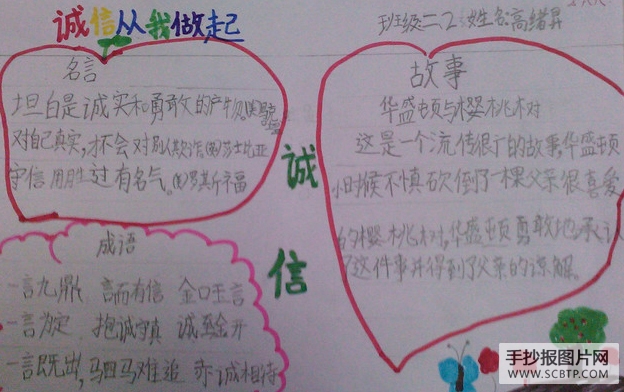 诚信从我做起
班级二2 姓名高绪昇
名言
坦白是诚实和勇敢的产物。
对自己真实,才不会对别人欺诈。(英)莎士比亚
守信用胜过有名气。(美)罗斯福
成语
一言九鼎 言而有信 金口玉言
一言为定 抱诚守真 诚至金开
一言既出,驷马难追 赤诚相待
诚
信
故事
华盛顿与樱桃树
这是一个流传很广的故事,华盛顿
小时候不慎砍倒了一棵父亲很喜爱
的樱桃树,华盛顿勇敢地承认
了这件事并得到了父亲的谅解。
手抄报图片网
WWW.SCBTP.COM